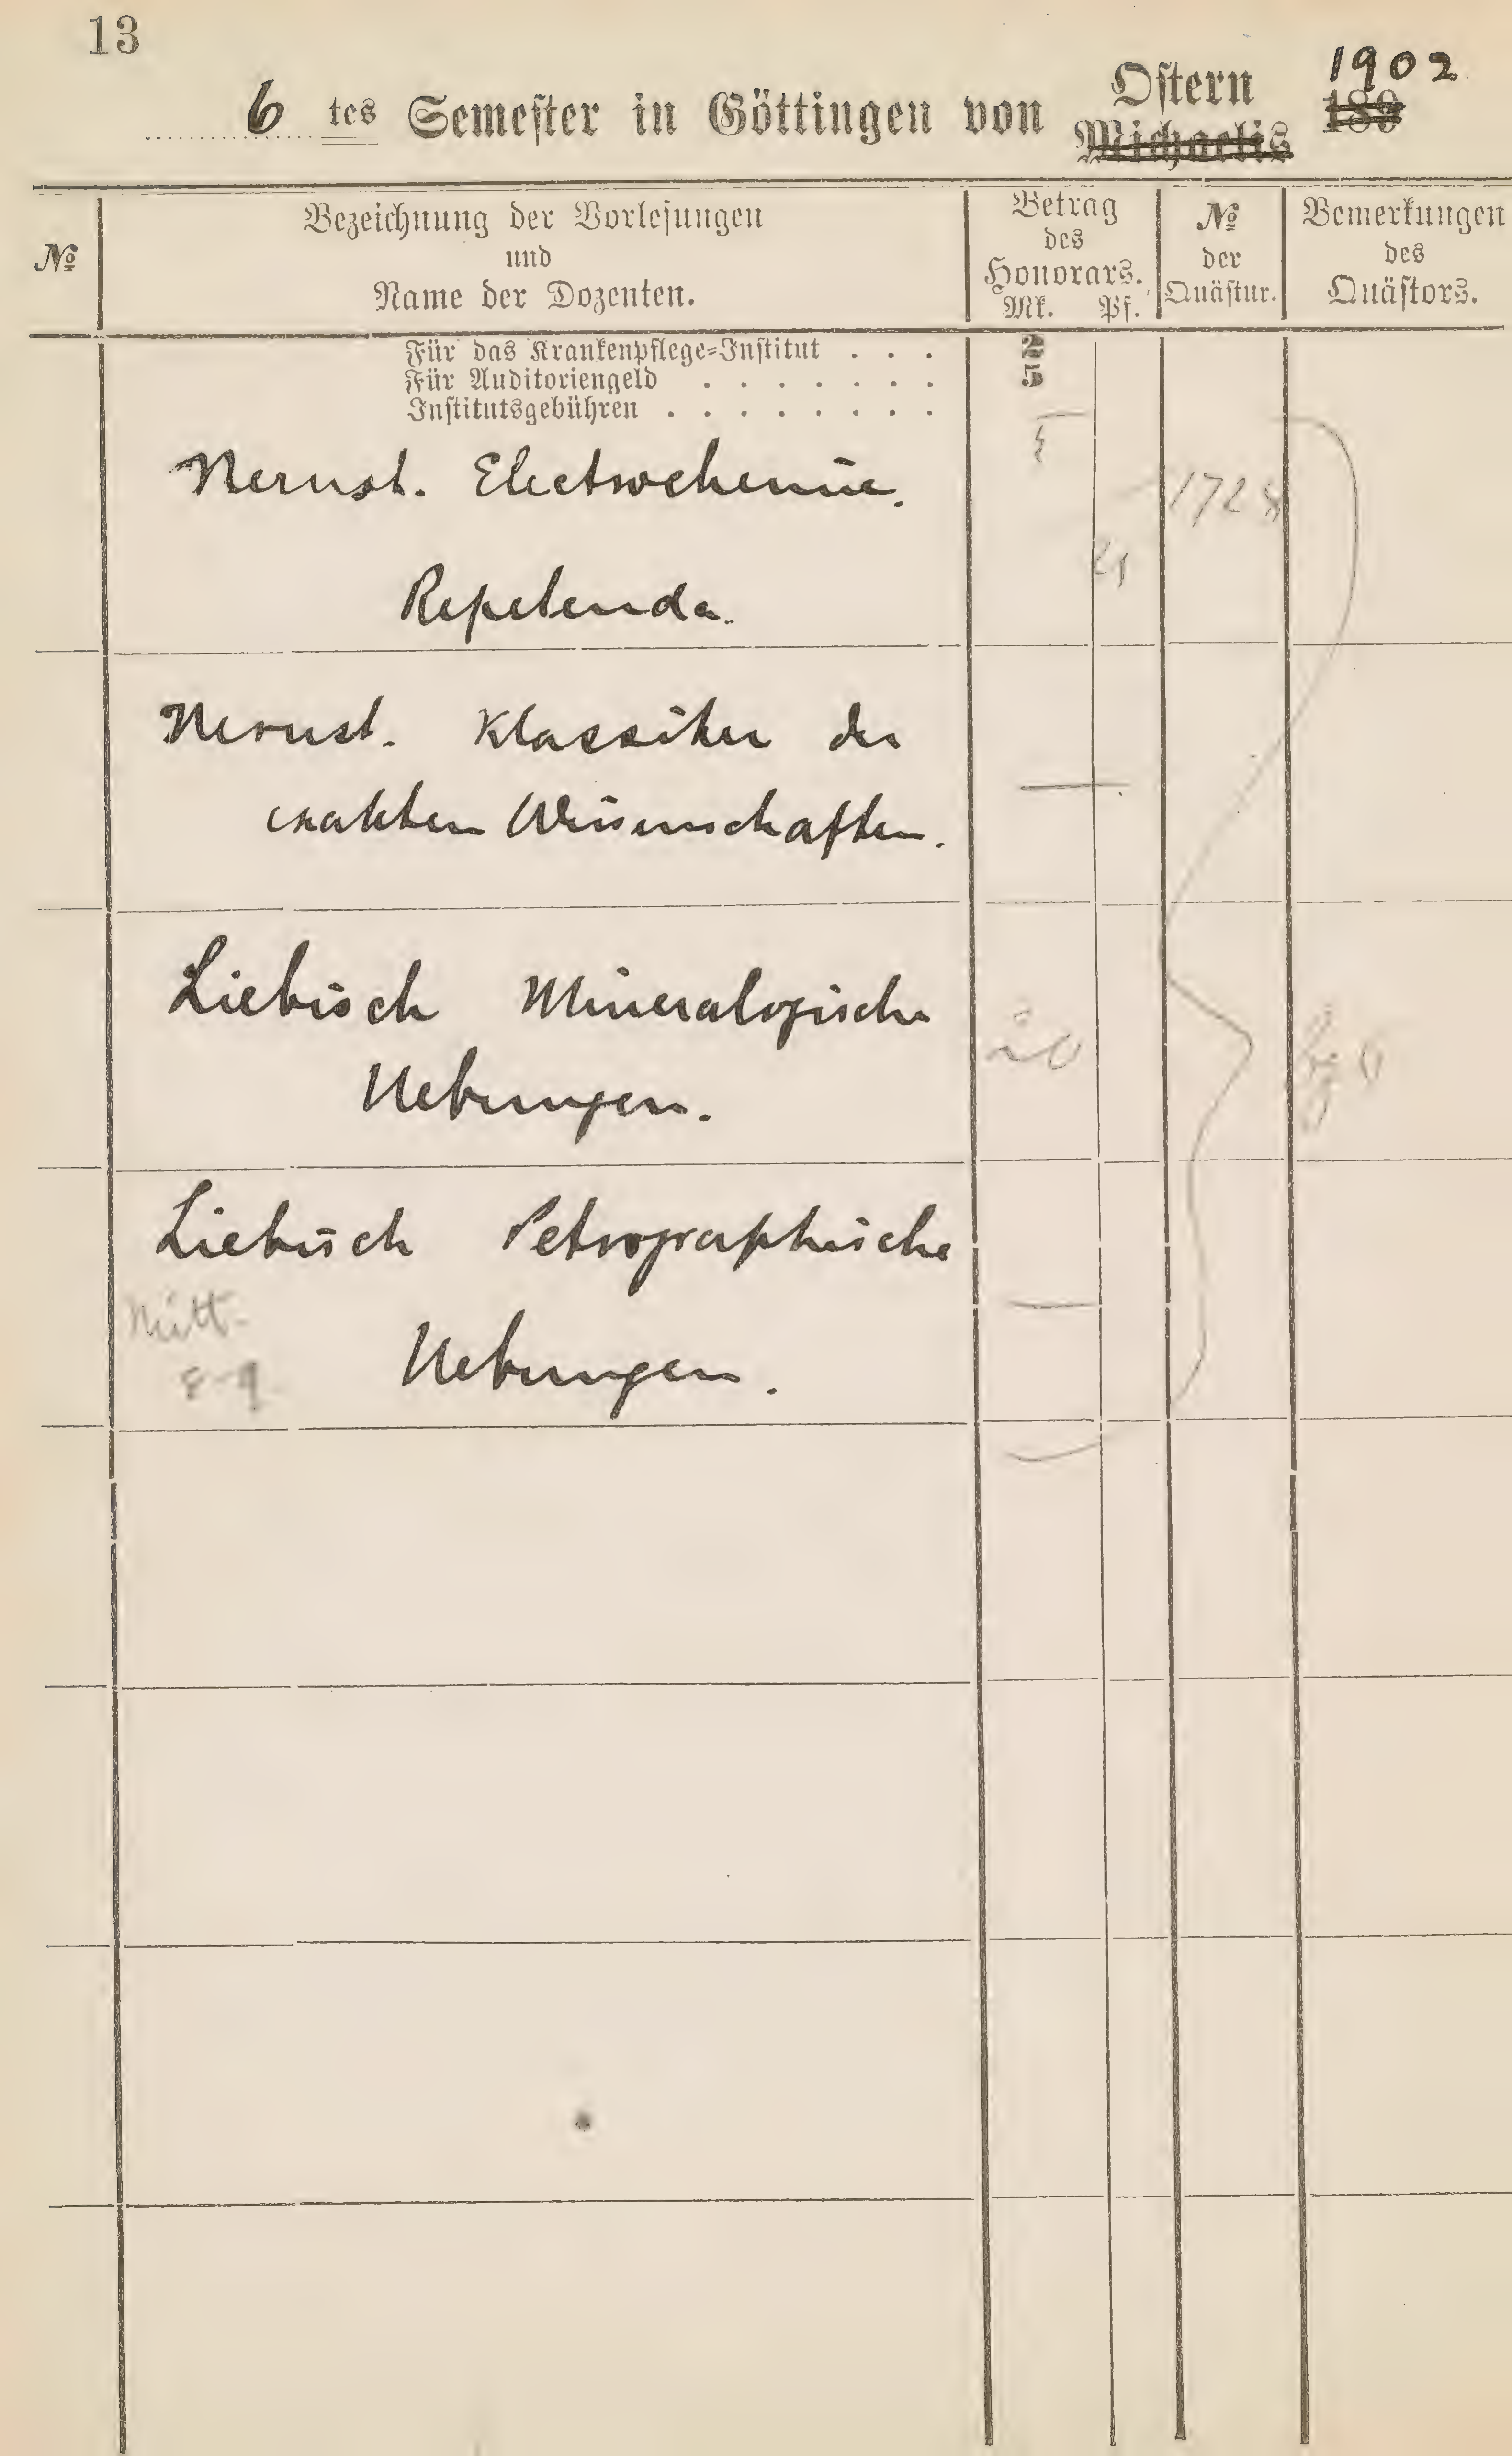 13
6 tes Semester in Göttingen von Ostern Michaelis 1902 189
№
Bezeichnung der Vorlesungen
und
Name der Dozenten.
Betrag
des
Honorars.
Mk. Pf.
№
der
Quästur.
Bemerkungen
des
Quästors.
Für das Krankenpflege-Institut . . . 2
Für Auditoriengeld . . . . . . . 5
Institutsgebühren . . . . . . . .
Nernst. Electrochemie. 
Repetenda.
Nernst. Klassiker der
exakten Wissenschaften.
Liebisch Mineralogische
Uebungen.
20
Liebisch Petrographische
Mitt-
8-9 Uebungen.